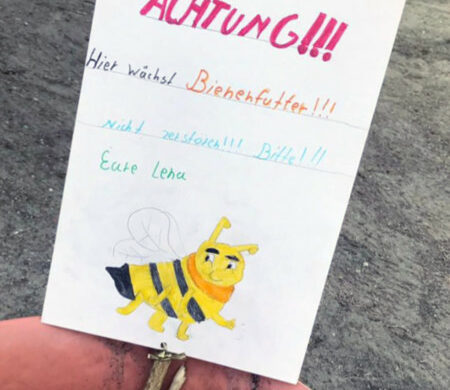 ACHTUNG!!!
Hier wächst Bienenfutter!!!
Nicht zerstören!!! Bitte!!!
Eure Lena